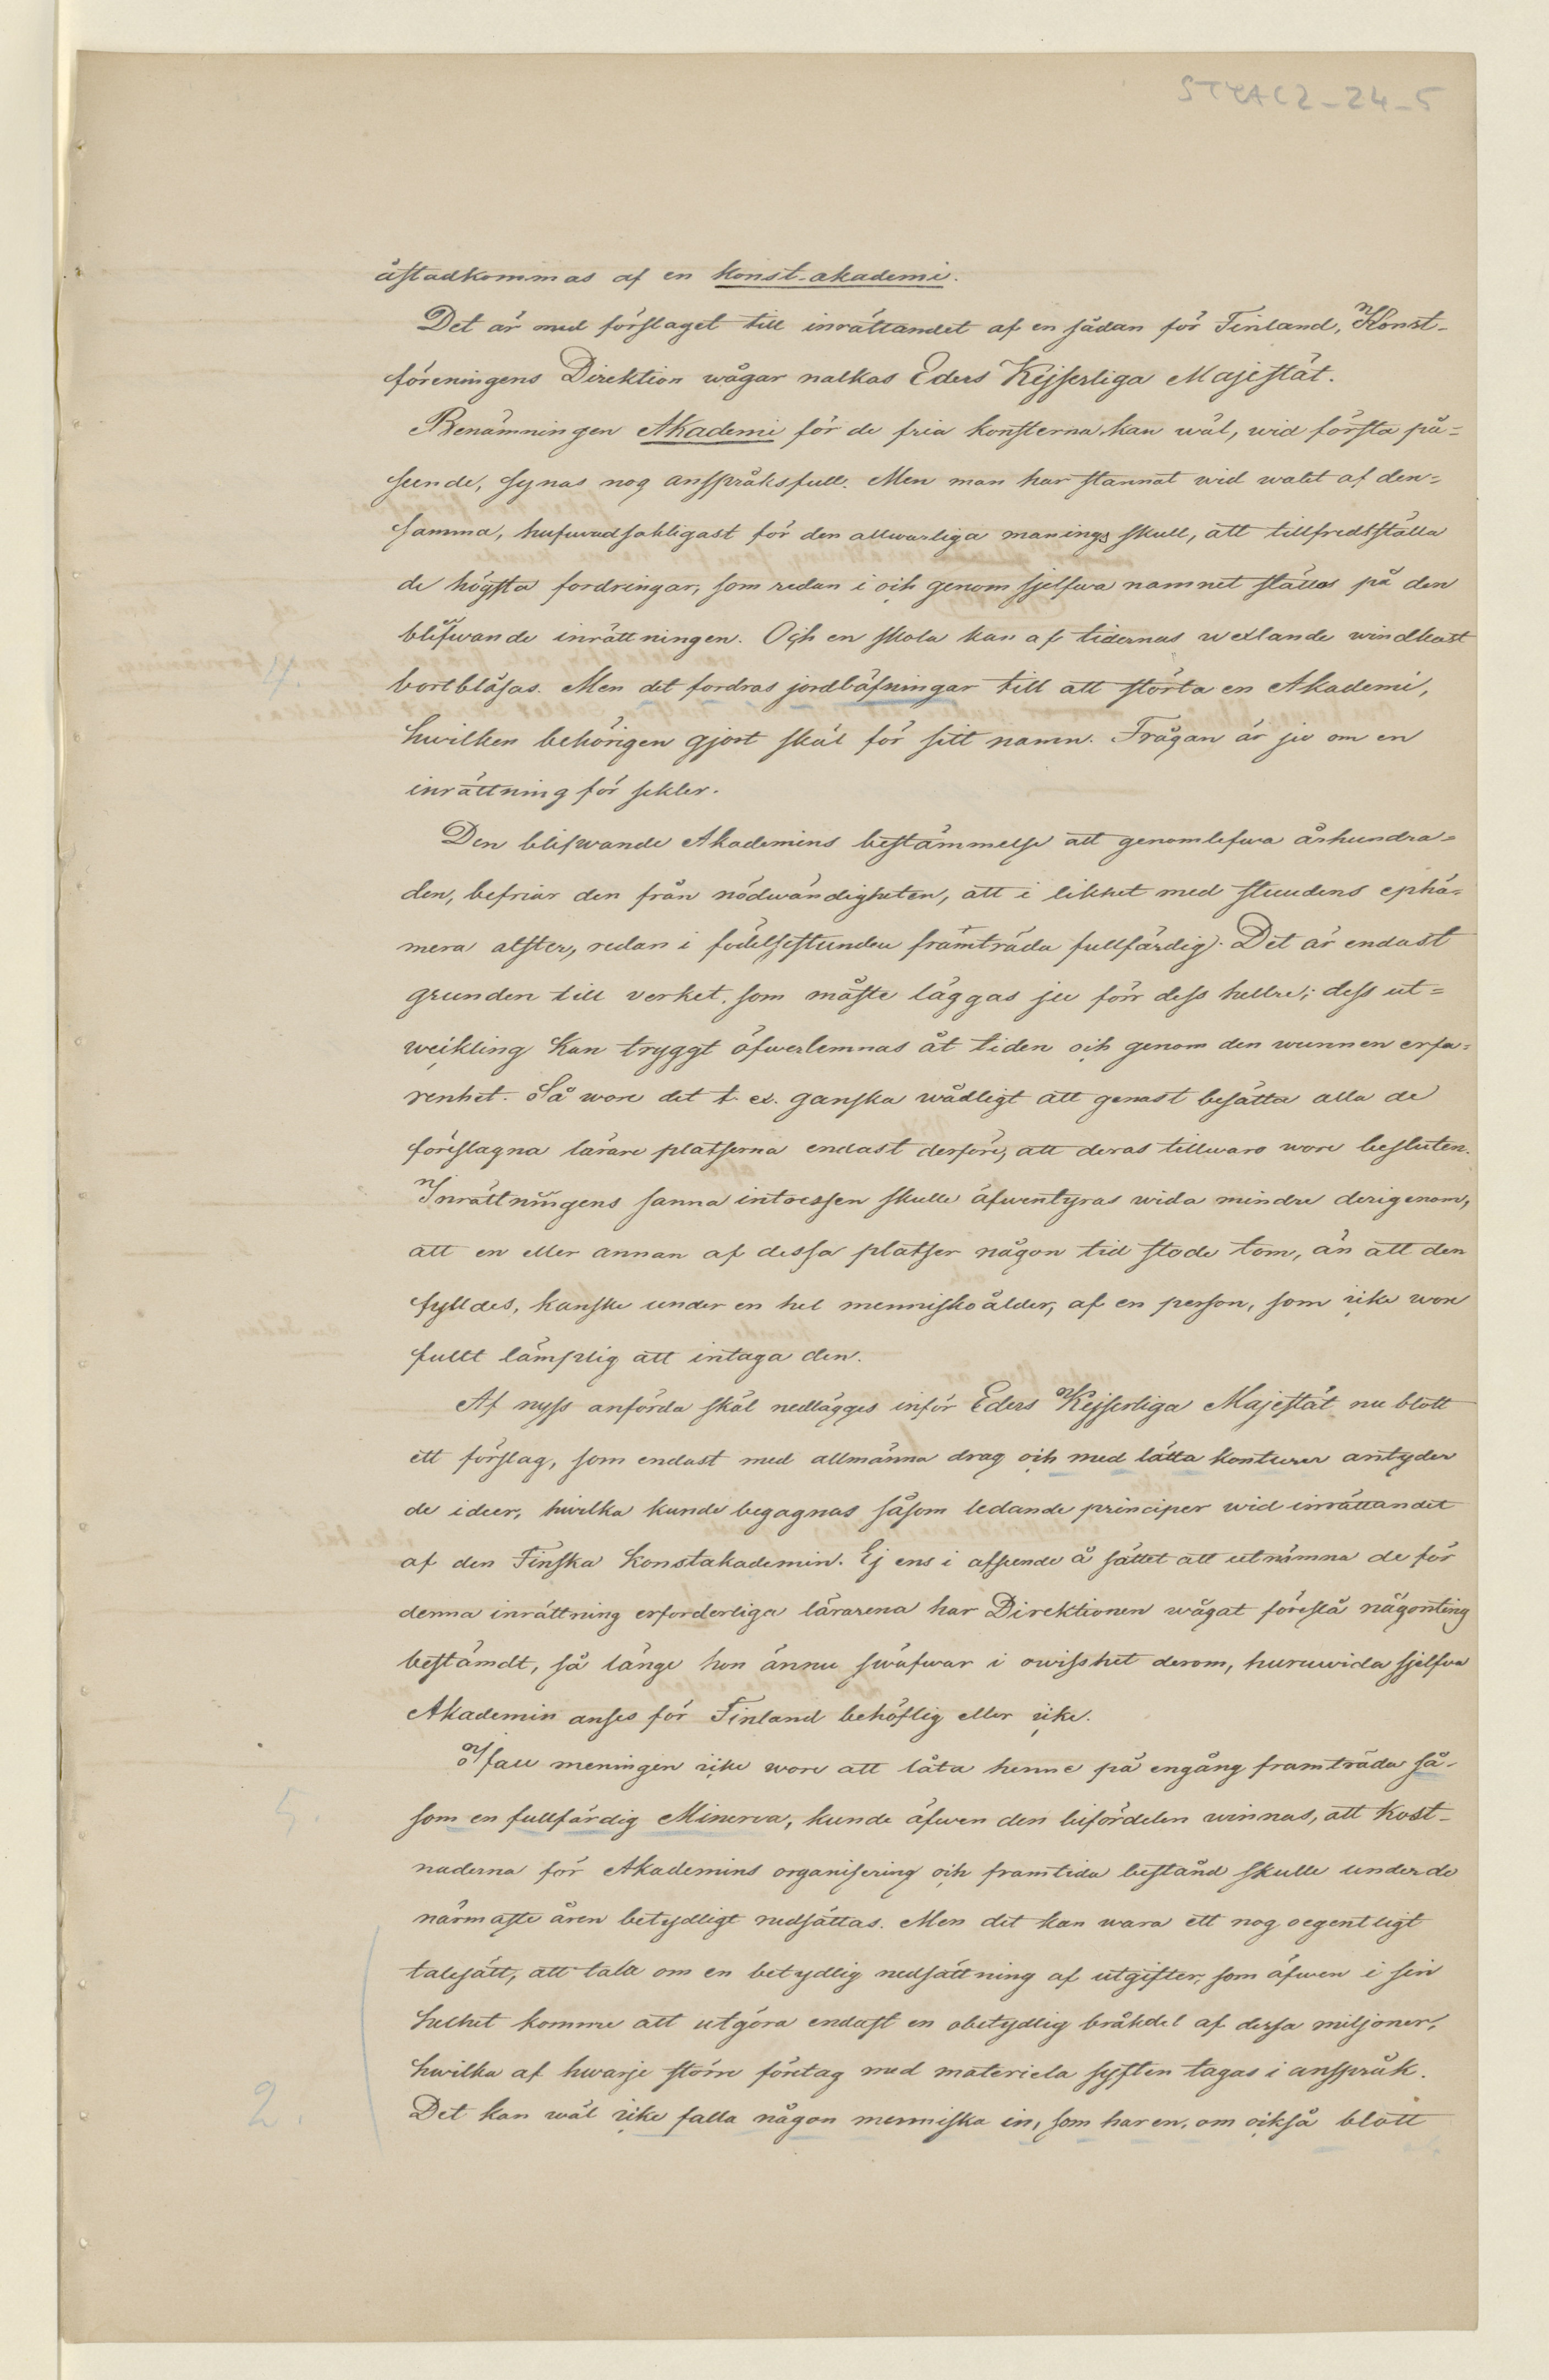 STYAC2-24-5
åstadkommas af en konst-akademi.
Det är med förslaget till inrättandet af en sådan för Finland, Konst-
föreningens Direktion wågar nalkas Eders Kejserliga Majestät.
Benämningen Akademi för de fria konsterna kan wäl, wid första på=
seende, synas nog anspråksfull. Men man har stannat wid walet af den=
samma, hufwudsakligast för den allwarliga manings skull, att tillfredsställa
de högsta fordringar, som redan i och genom sjelfwa namnet ställas på den
blifwande inrättningen. Och en skola kan af tidernas wexlande windkast
4.
bortblåsas. Men det fordras jordbäfningar till att störta en Akademi,
hwilken behörigen gjort skäl för sitt namn. Frågan är ju om en
inrättning för sekler.
Den blifwande Akademins bestämmelse att genomlefwa århundra=
den, befriar den från nödwändigheten, att i likhet med stundens ephä=
mera alster, redan i födelsestunden framträda fullfärdig. Det är endast
grunden till verket, som måste läggas ju förr dess hellre; dess ut=
weckling kan tryggt öfwerlemnas åt tiden och genom den wunnen erfa=
renhet. Så wore det t. ex. ganska wådligt att genast besätta alla de
föreslagna lärare platserna endast derföre, att deras tillwaro wore besluten.
Inrättningens sanna intressen skulle äfwentyras wida mindre derigenom,
att en eller annan af dessa platser någon tid stode tom, än att den
fylldes, kanske under en hel menniskoålder, af en person, som icke wore
fullt lämplig att intaga den.
Af nyss anförda skäl nedlägges inför Eders Kejserliga Majestät nu blott
ett förslag, som endast med allmänna drag och med lätta konturer antyder
de ideer, hwilka kunde begagnas såsom ledande principer wid inrättandet
af den Finska Konstakademin. Ej ens i afseende å sättet att utnämna de för
denna inrättning erforderliga lärarena har Direktionen wågat föreslå någonting
bestämdt, så länge hon ännu swäfwar i owisshet derom, huruwida sjelfwa
Akademin anses för Finland behöflig eller icke.
I fall meningen icke wore att låta henne på engång framträda så-
5.
som en fullfärdig Minerva, kunde äfwen den bifördelen winnas, att kost-
naderna för Akademins organisering och framtida bestånd skulle under de
närmaste åren betydligt nedsättas. Men det kan wara ett nog oegentligt
talesätt, att tala om en betydlig nedsättning af utgifter, som äfwen i sin
helhet komme att utgöra endast en obetydlig bråkdel af dessa miljoner,
hwilka af hwarje större företag med materiela syften tagas i anspråk.
2.
Det kan wäl icke falla någon menniska in, som har en, om också blott